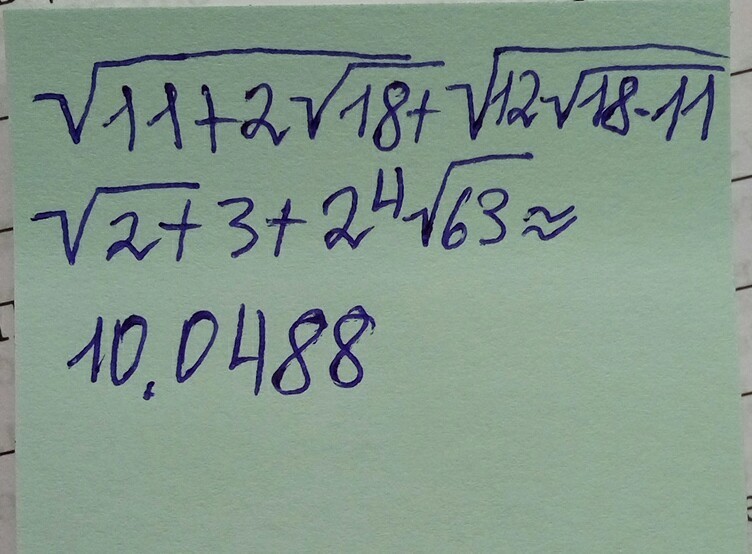 √11+2√18+√12√18-11
√2+3+2⁴√63≈
10.0488